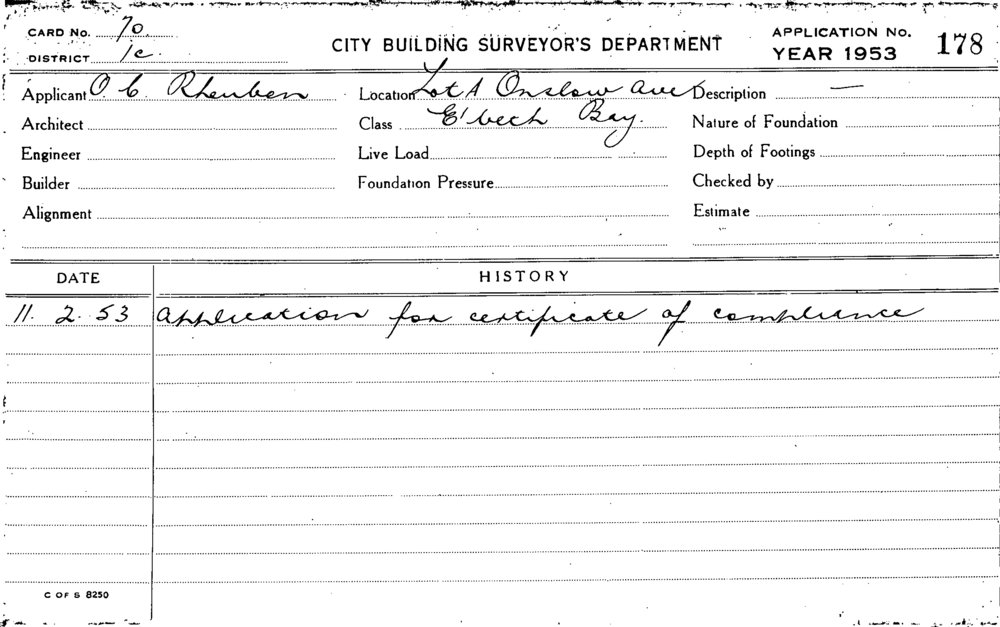 CARD No. 70.
DISTRICT 1c.
CITY BUILDING SURVEYOR'S DEPARTMENT
APPLICATION No. 178
YEAR 1953
Applicant O. C. Rheuben Location Lot A Onslow Ave Description —
Architect Class E'beth Bay. Nature of Foundation
Engineer Live Load Depth of Footings
Builder Foundation Pressure Checked by
Alignment Estimate
DATE HISTORY
11. 2. 53 Application for certificate of compliance
C OF S 8250